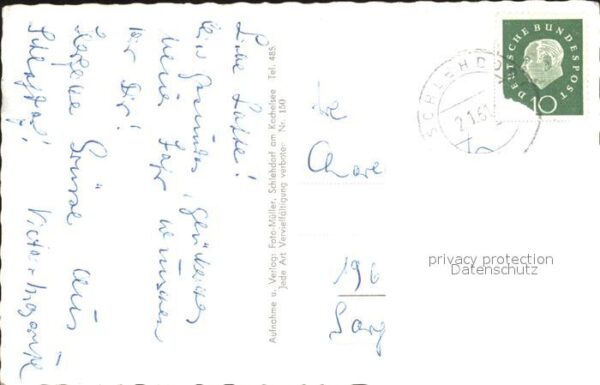 Liebe Lotte!
Ein gesundes, glückliches
neues Jahr wünschen
wir Dir!
Herzliche Grüsse aus
Schlehdorf!
Aufnahme u. Verlag: Foto-Müller, Schlehdorf am Kochelsee Tel. 485
Jede Art Vervielfältigung verboten Nr. 150
DEUTSCHE BUNDESPOST
10
SCHLEHDORF
2.1.61
196
privacy protection
Datenschutz